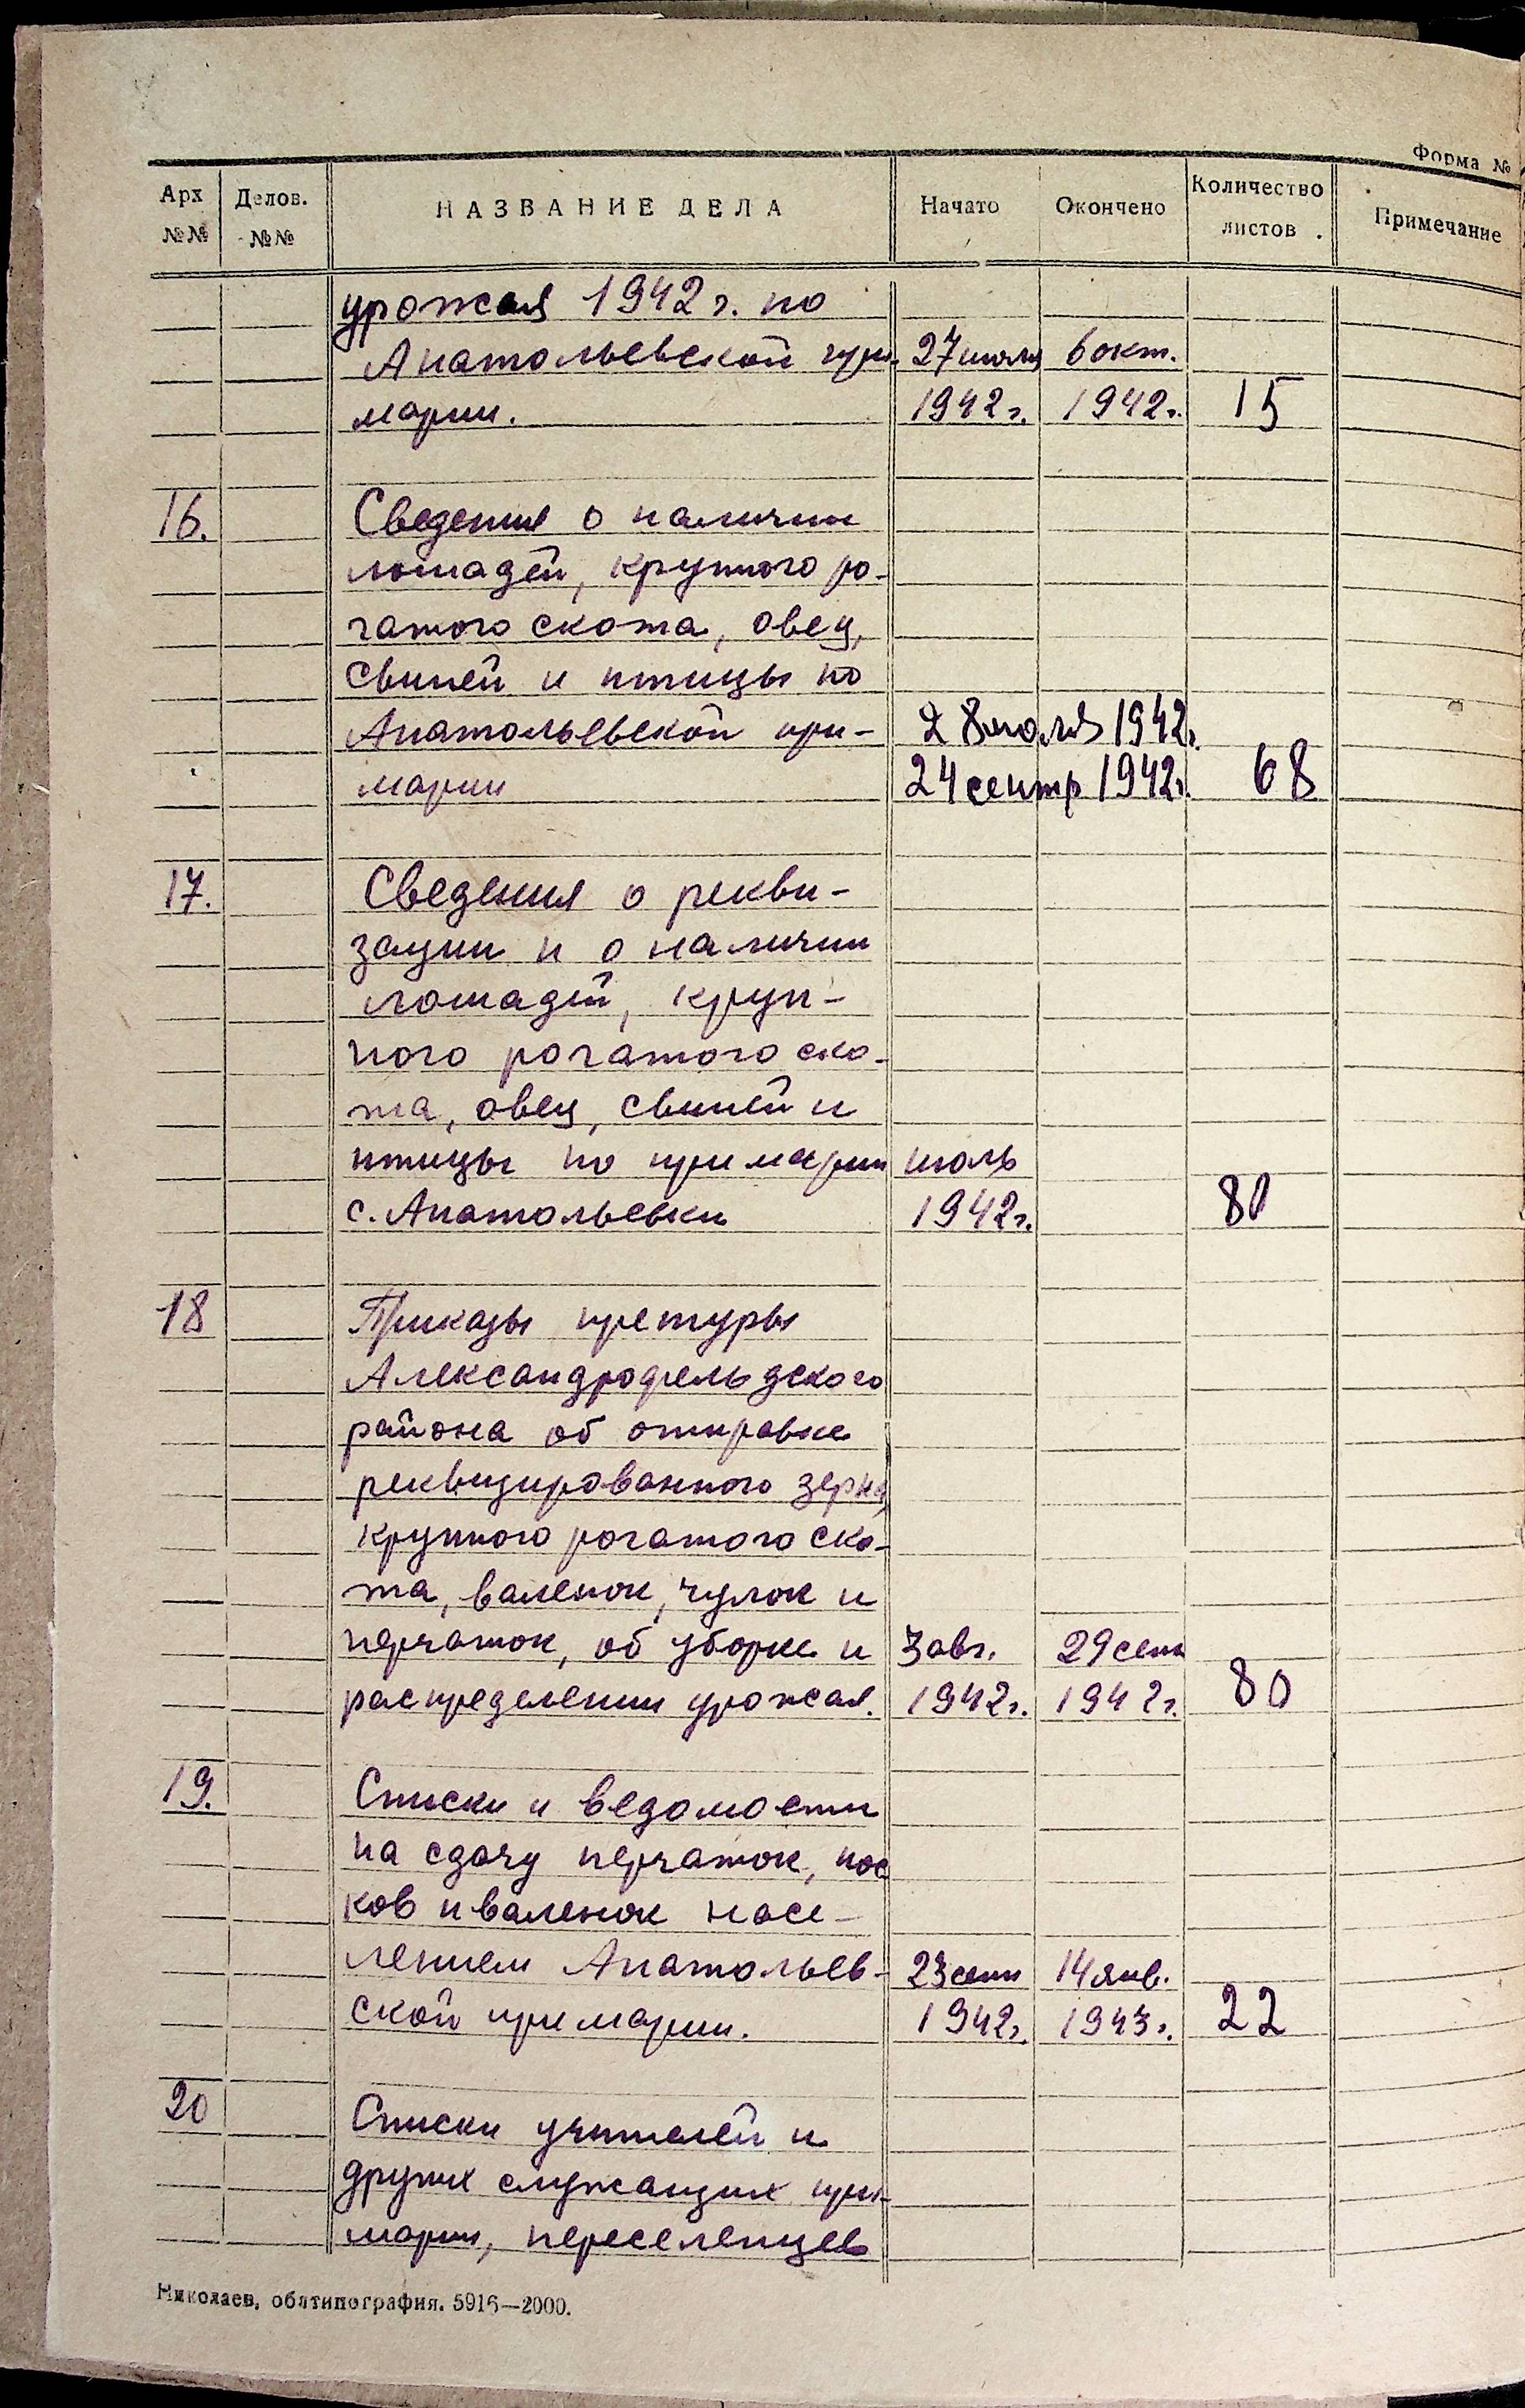 Форма №
Арх №№ Делов. №№ НАЗВАНИЕ ДЕЛА Начато Окончено Количество листов Примечание
урожая 1942 г. по
Анатольевской при- 27 июля 6 окт.
марии. 1942 г. 1942 г. 15
16. Сведения о наличии
лошадей, крупного ро-
гатого скота, овец,
свиней и птицы по
Анатольевской при- 28 июля 1942 г.
марии 24 сентр 1942 г. 68
17. Сведения о рекви-
зации и о наличии
лошадей, круп-
ного рогатого ско-
та, овец, свиней и
птицы по примарии июль
с. Анатольевки 1942 г. 80
18 Приказы претуры
Александрофельдского
района об отправке
реквизированного зерна,
крупного рогатого ско-
та, валенок, чулок и
перчаток, об уборке и 3 авг. 29 сен
распределении урожая. 1942 г. 1942 г. 80
19. Списки и ведомости
на сдачу перчаток, нос
ков и валенок насе-
лением Анатольев- 23 сен 14 янв.
ской примарии. 1942 г. 1943 г. 22
20 Списки учителей и
других служащих при-
марии, переселенцев
Николаев, облтипография. 5916—2000.